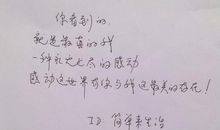 你看到的,
就是最真的我
一种无之无尽的感动
感动这世界有你与我这最美的存在!
ID 简单来生活